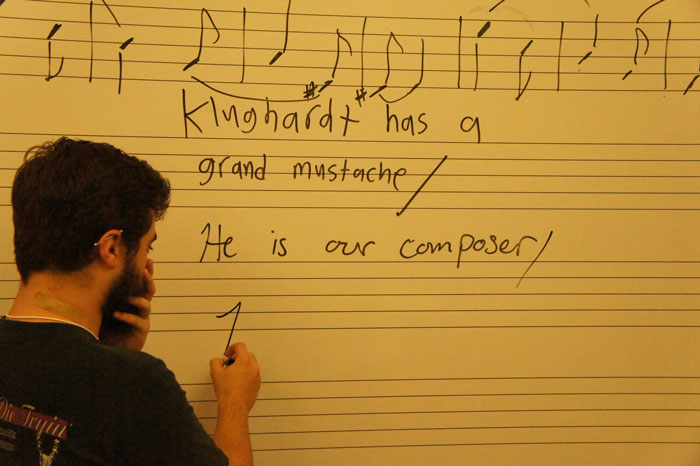 Klughardt has a
grand mustache/
He is our composer/
Die Tryin'